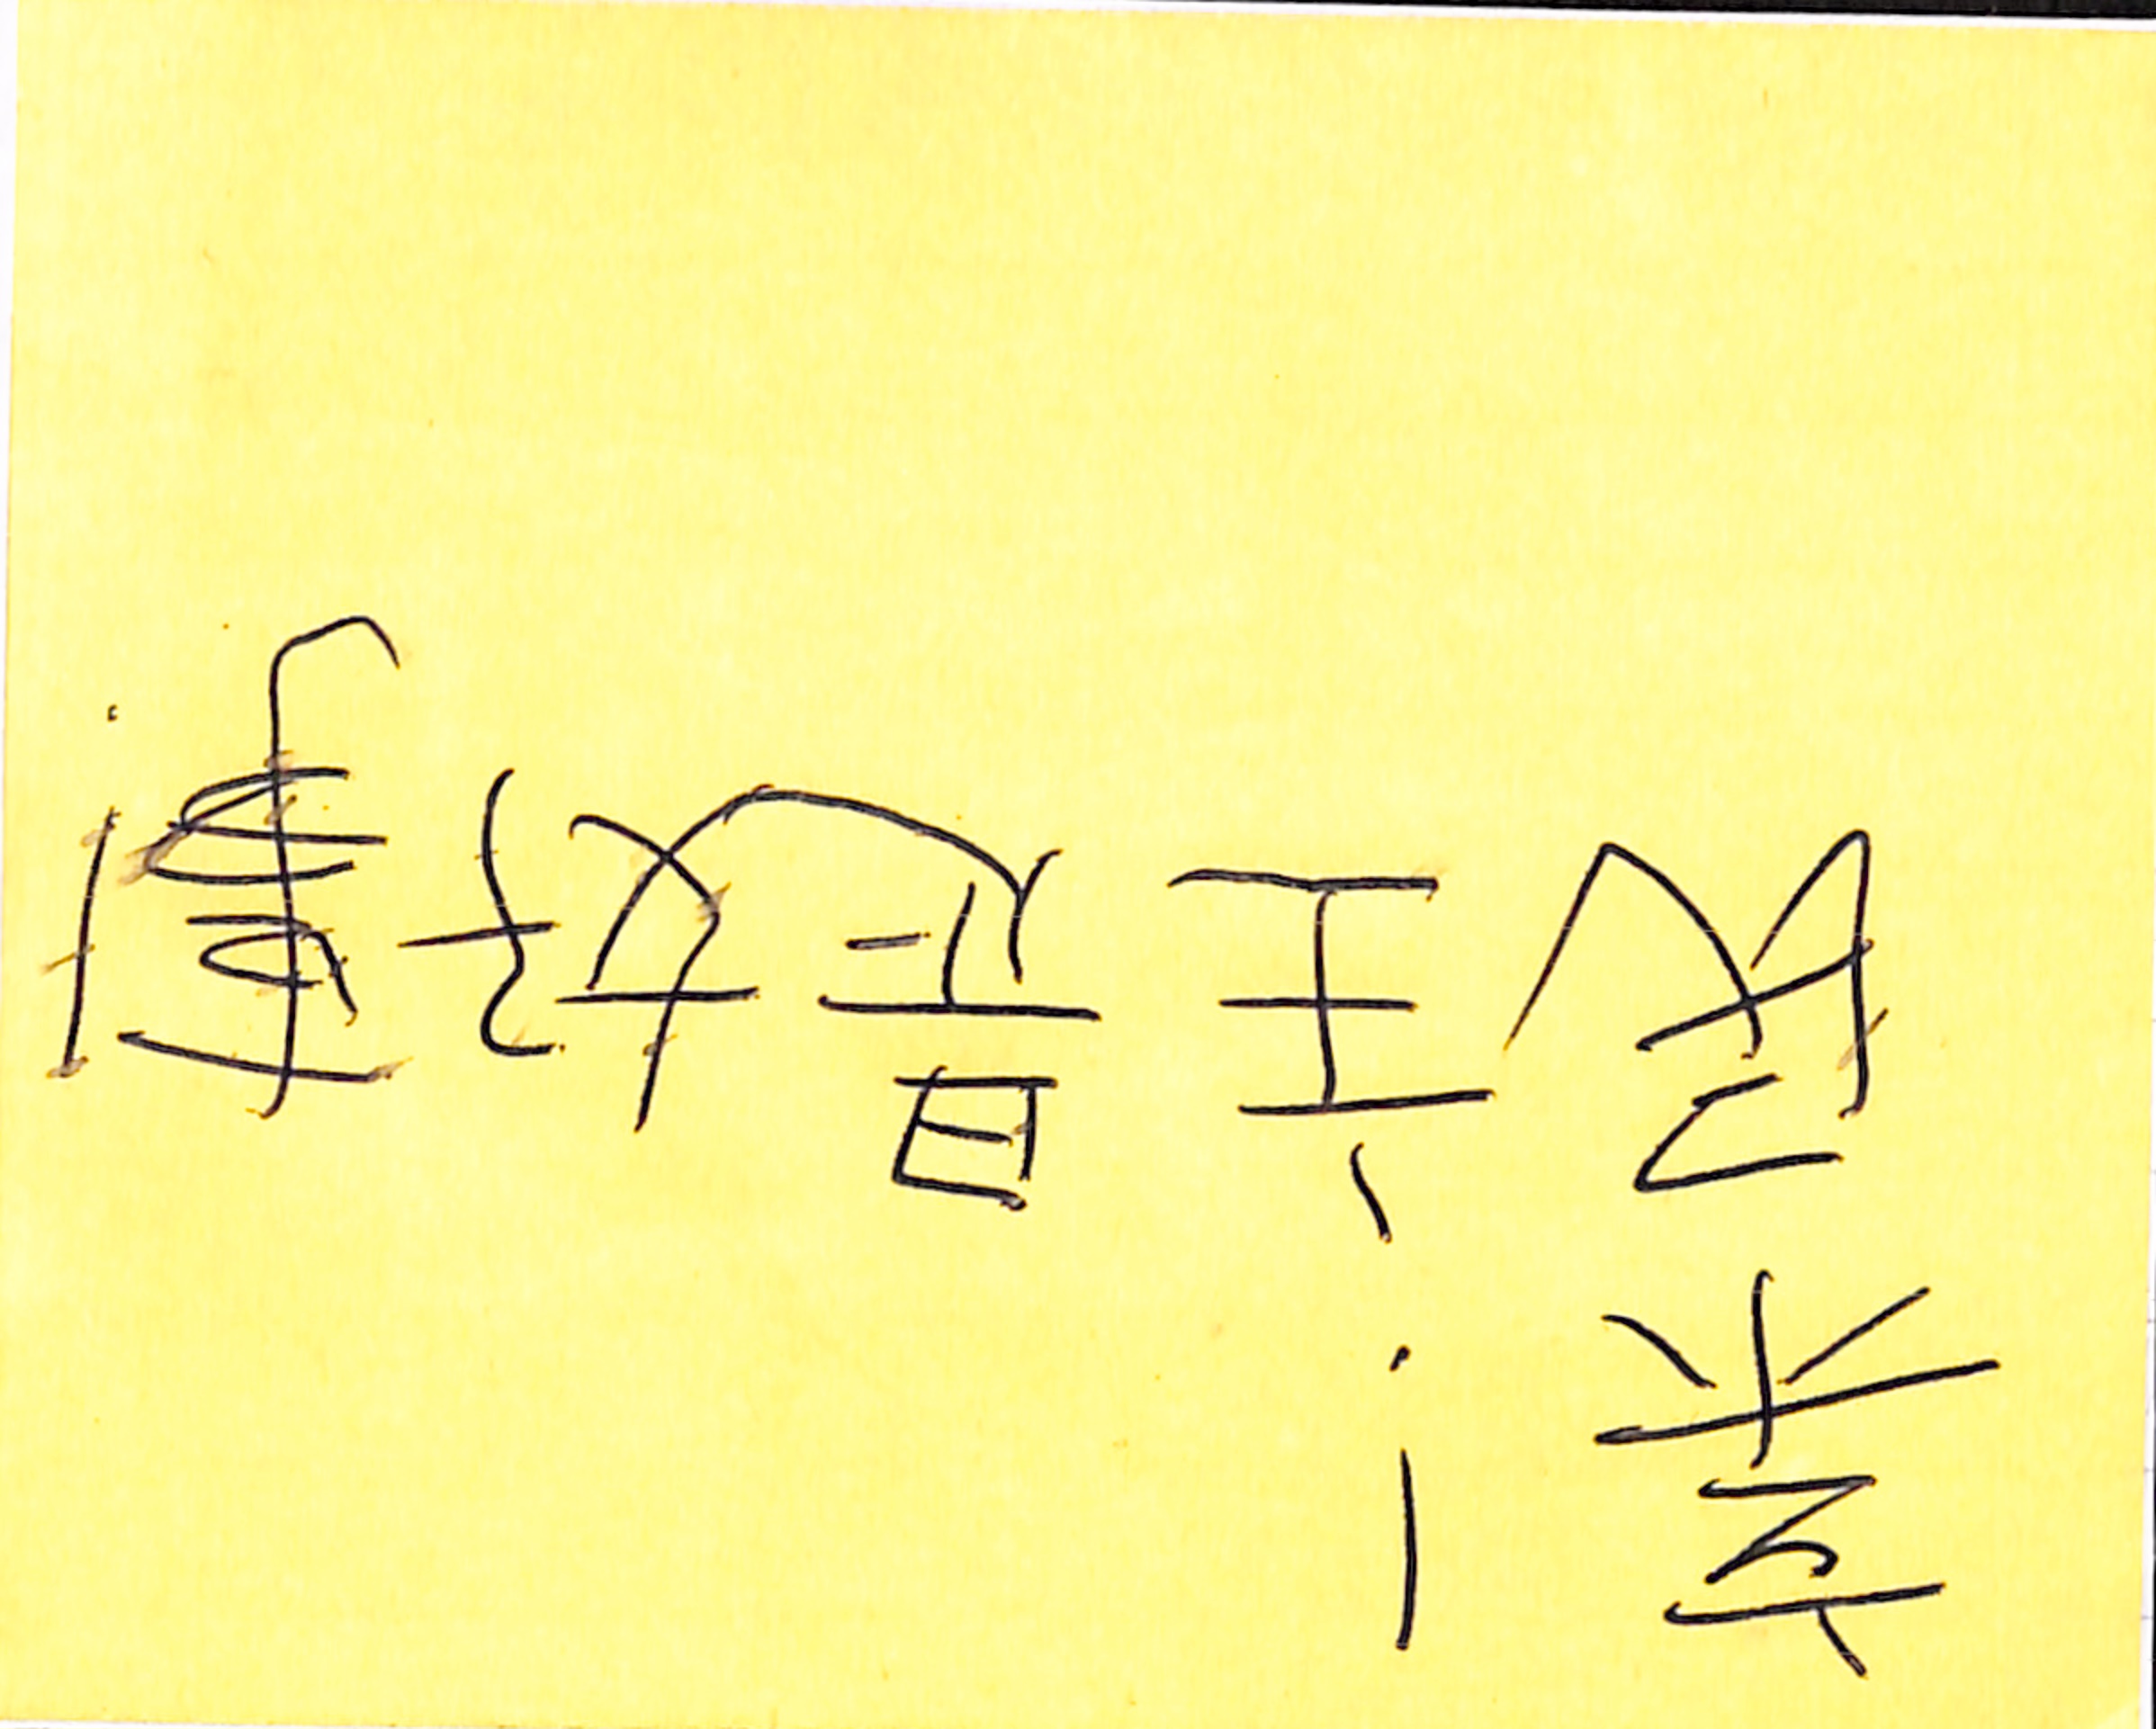 亲!
民主是好事!